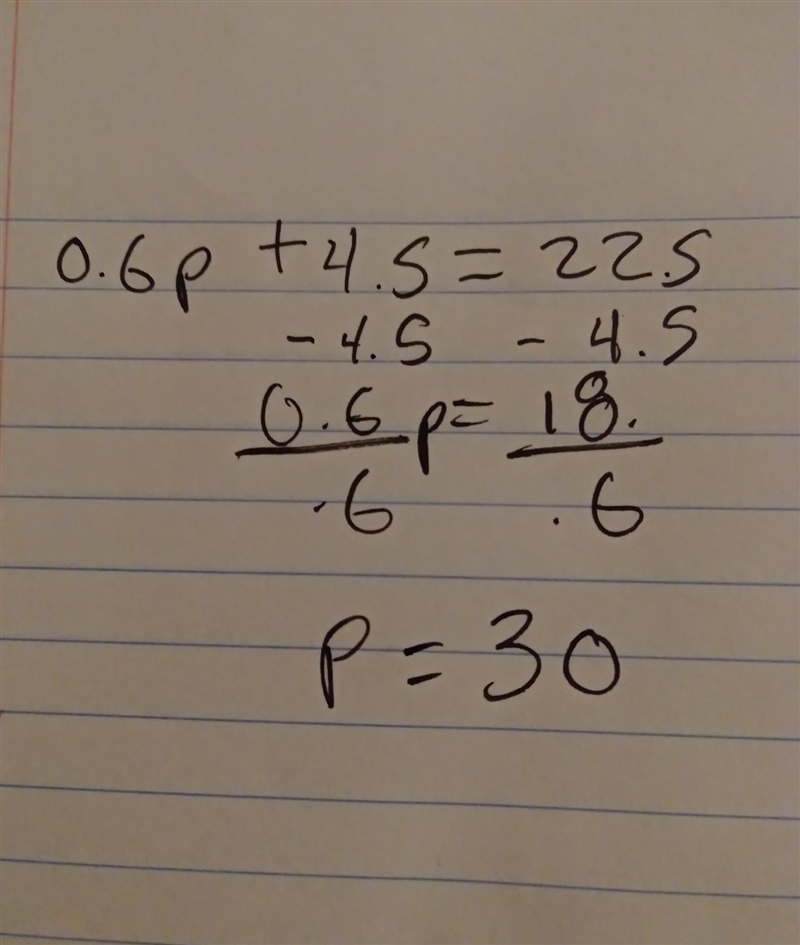 0.6p + 4.5 = 22.5
- 4.5 - 4.5
0.6p = 18.
.6 .6
P = 30